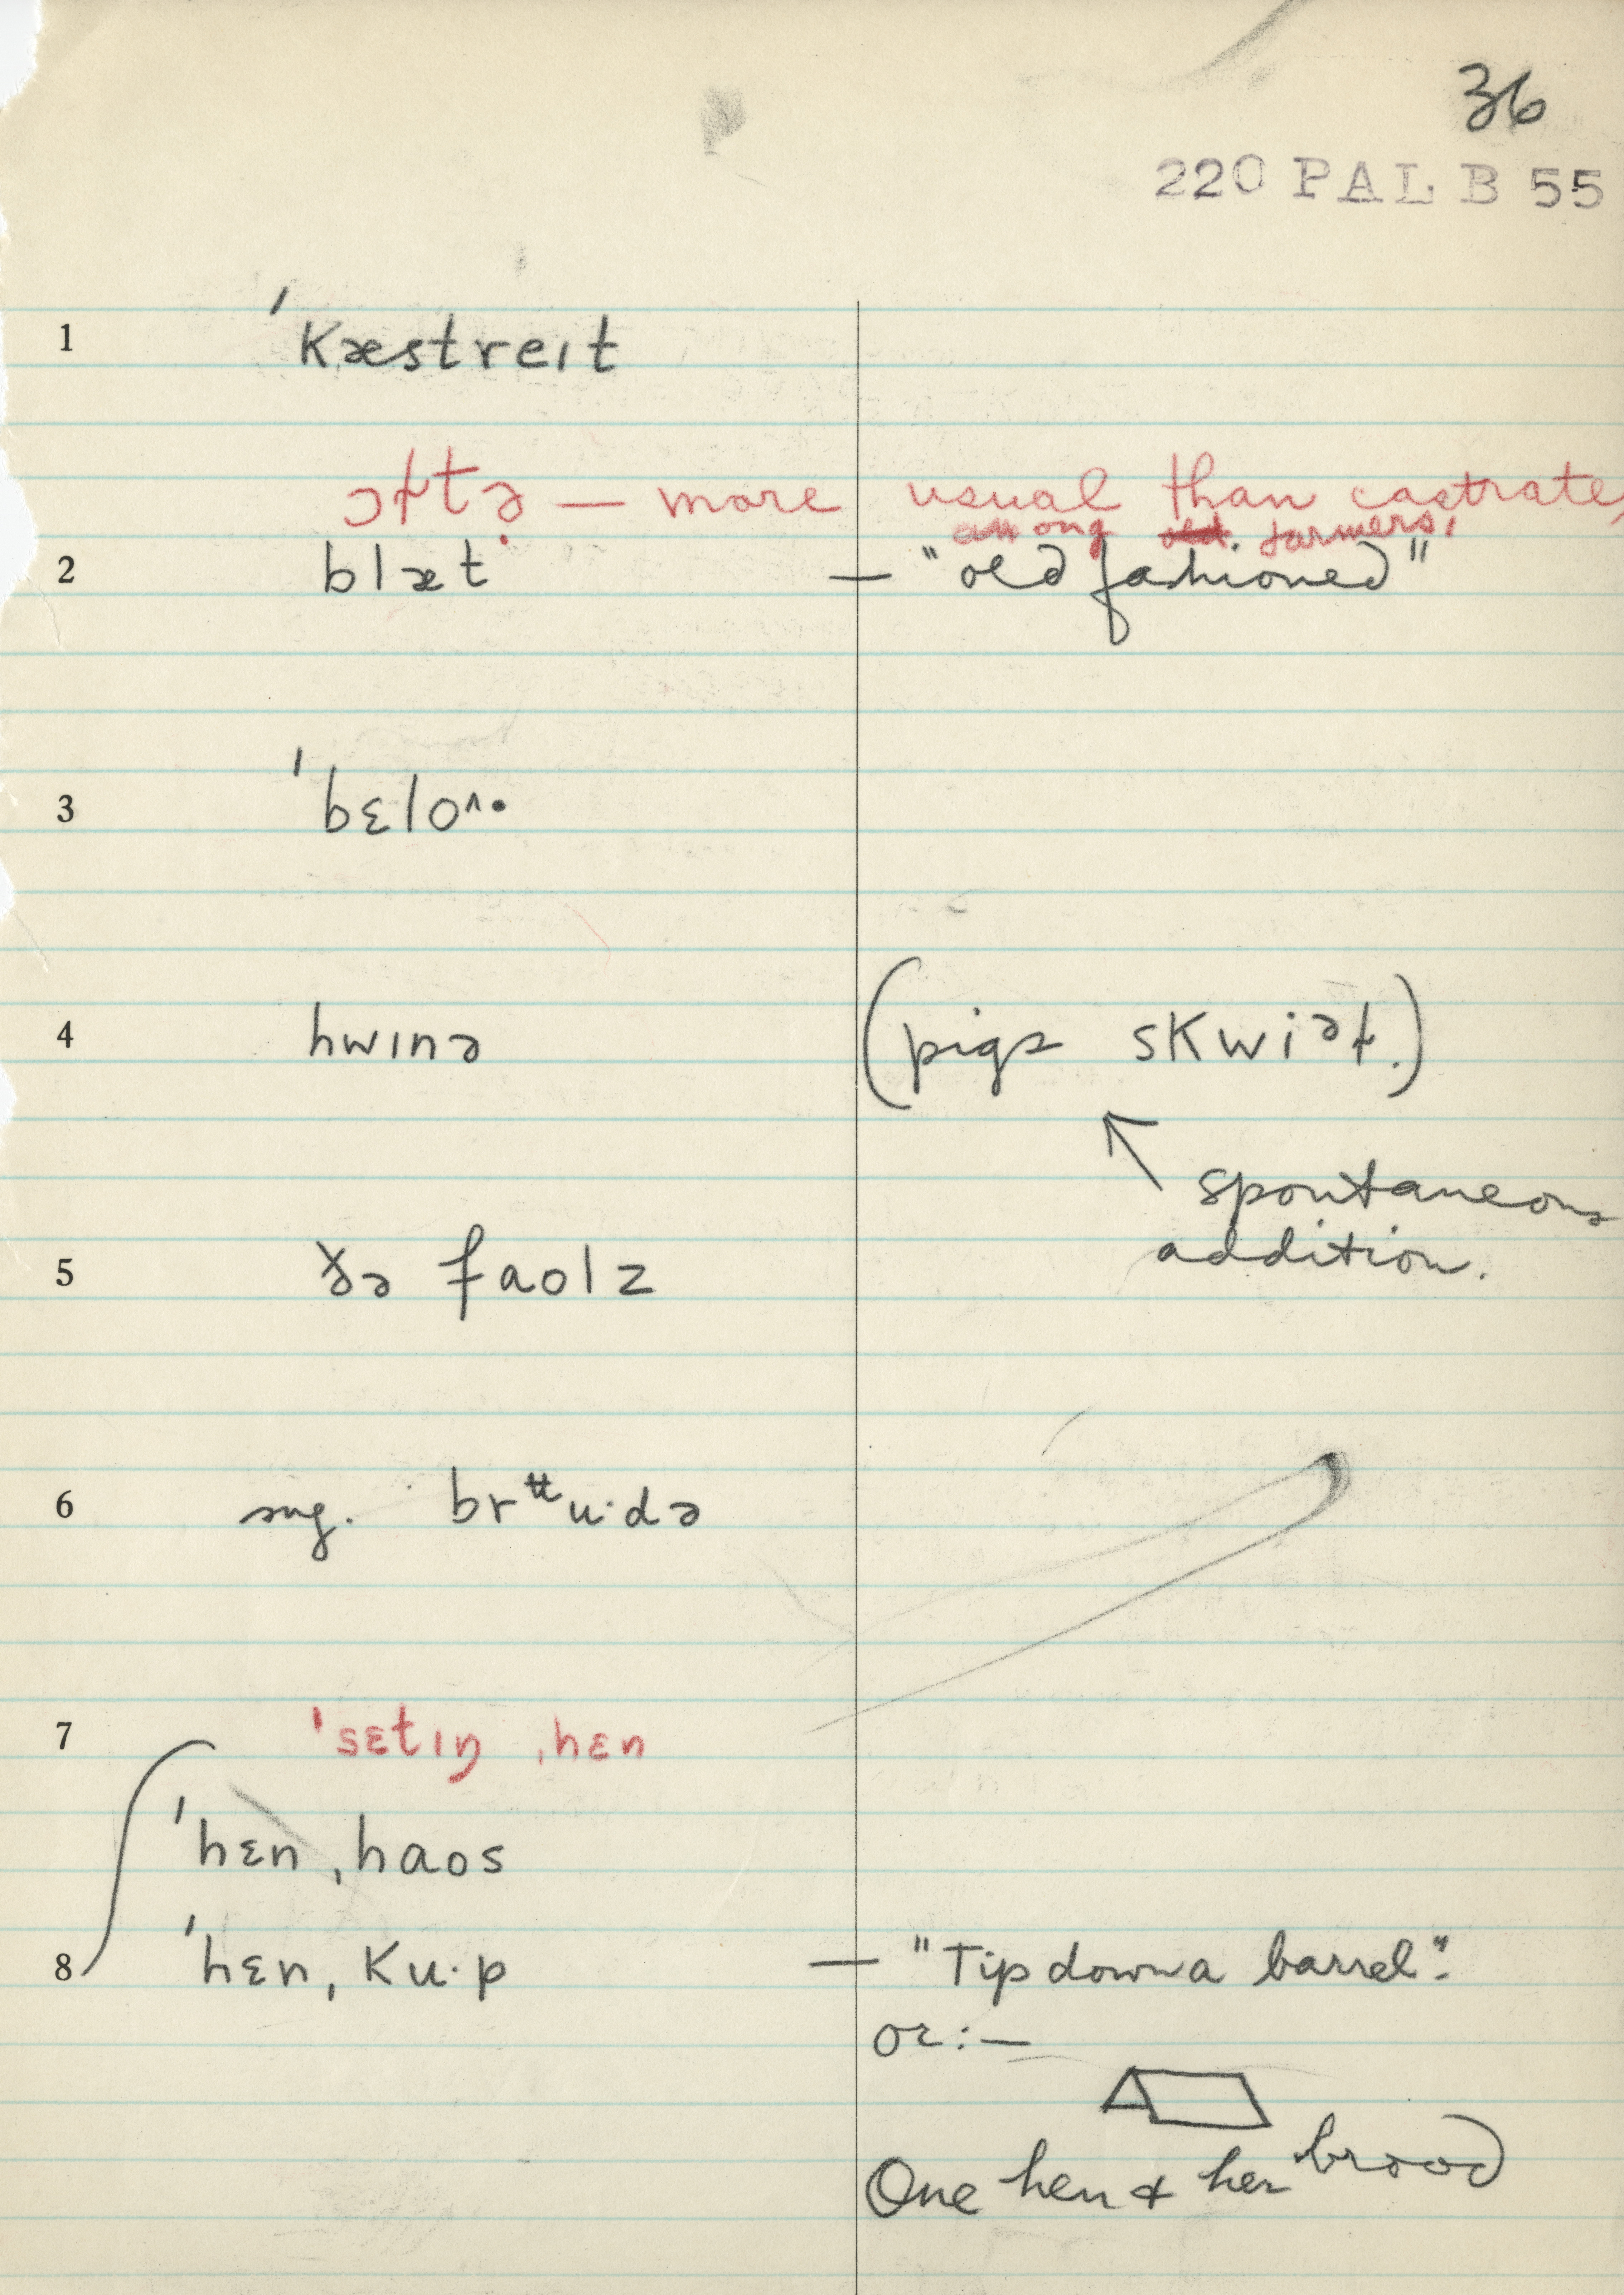 36
220 PAL B 55
1 ˈkæstreɪt
ɔɫtə — more usual than castrate,
among old farmers,
2 blæt — "old fashioned"
3 ˈbɛloʌ·
4 hwɪnə (pigs skwiəɫ.)
spontaneous
addition.
5 ðə faolz
6 sug. brᵗᵗu·də
7 ˈsɛtɪŋ ˌhɛn
ˈhɛn ˌhaos
8 ˈhɛn ˌku·p — "Tip down a barrel".
or:—
One hen & her brood